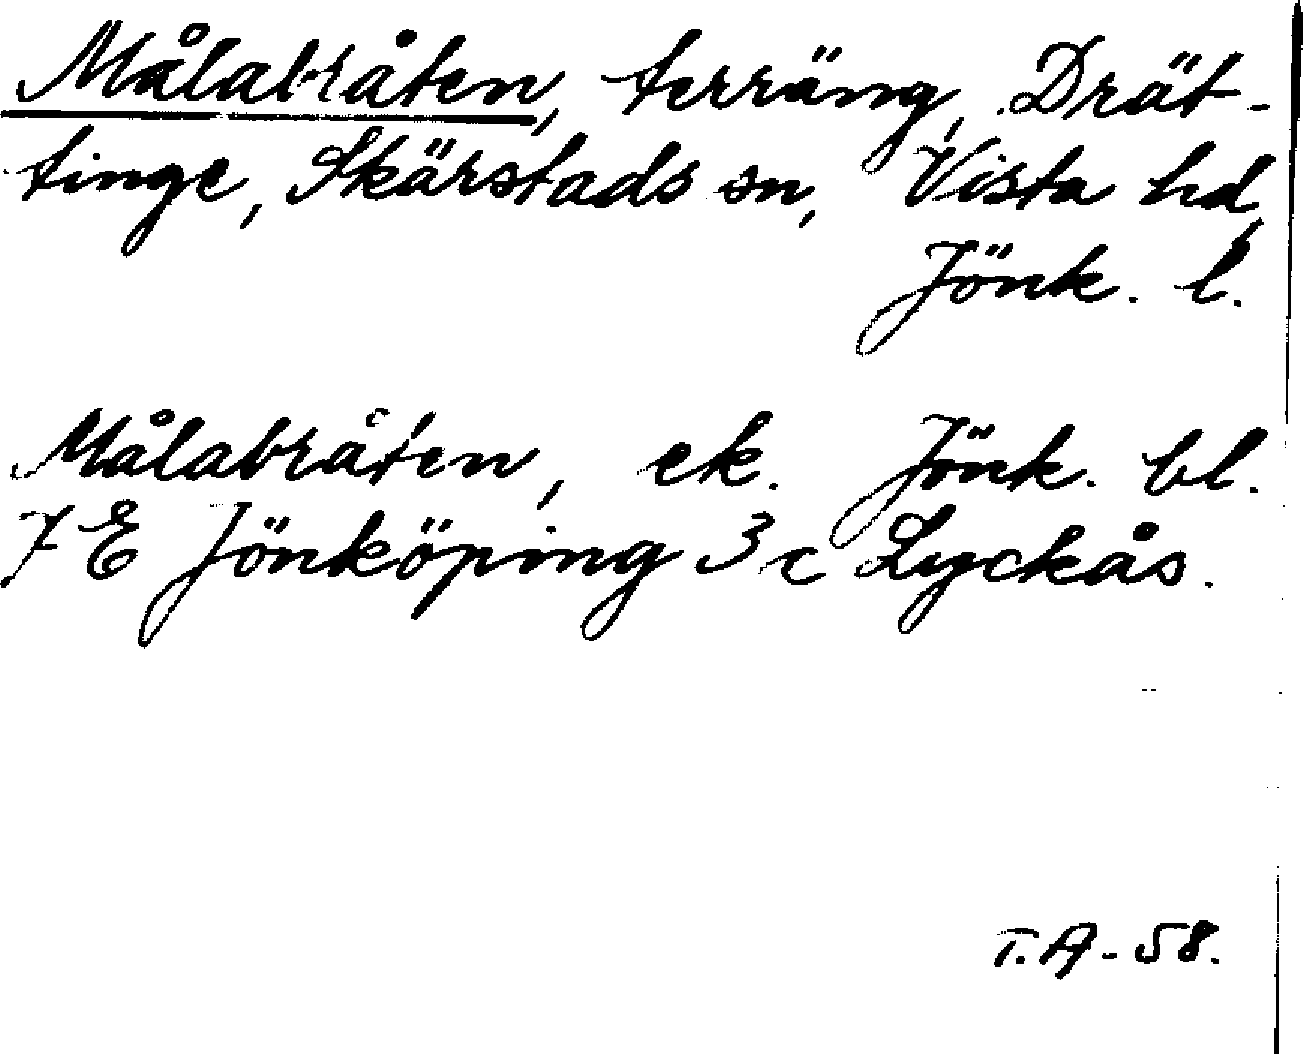 Målabråten, terräng, Drät-
tinge, Skärstads sn, Vista hd,
Jönk. l.
Målabråten, ek. Jönk. bl.
7 E Jönköping 3 c Lyckås.
T.A-58.